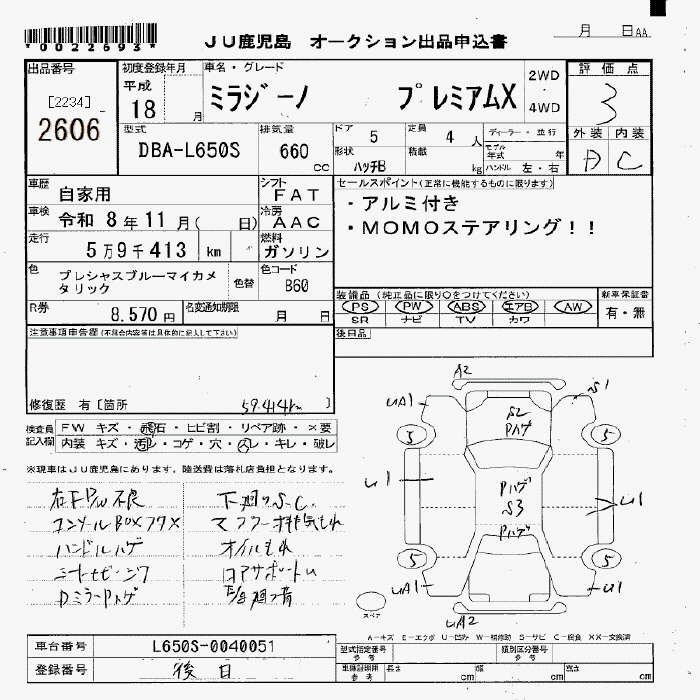 *0022693*
JU鹿児島 オークション出品申込書
月 日AA
出品番号
[2234]
2606
初度登録年月
平成
18 月
車名・グレード
ミラジーノ プレミアムX
2WD
4WD
評価点
3
外装 内装
D C
型式
DBA-L650S
排気量
660 cc
ドア 5
定員 4 人
形状 ハッチB
積載 kg
ディーラー・並行
モデル年式 年
ハンドル 左・右
車歴 自家用
シフト FAT
車検 令和 8年11月( 日)
冷房 AAC
走行 5万9千413 km
燃料 ガソリン
色 プレシャスブルーマイカメタリック
色替
色コード B60
R券 8,570円
名変通知期限 月 日
セールスポイント(正常に機能するものに限ります)
・アルミ付き
・MOMOステアリング!!
装備品(純正品に限り○をつけてください)
PS PW ABS エアB AW
SR ナビ TV カワ
新車保証書
有・無
後日品
注意事項申告欄(不具合内容等は具体的に記入して下さい)
修復歴 有[箇所 ]
59.414km
検査員記入欄
FW キズ・飛石・ヒビ割・リペア跡・×要
内装 キズ・汚レ・コゲ・穴・スレ・キレ・破レ
※現車はJU鹿児島にあります。陸送費は落札店負担となります。
右FP/W不良
コンソールBOXフタX
ハンドルハゲ
DミラーPハゲ
下廻りS.C.
マフラー排気もれ
オイルもれ
コアサポートU
A2
UA1
S1
S2
Pハゲ
5
5
U1
Pハゲ
S3
U1
Pハゲ
5
5
UA1
U1
UA2
スペア
A−キズ E−エクボ U−凹み W−補修跡 S−サビ C−腐食 XX−交換済
車台番号 L650S-0040051
登録番号 後日
型式指定番号 参考
類別区分番号 参考
車検証期限 参考
長さ cm
幅 cm
高さ cm